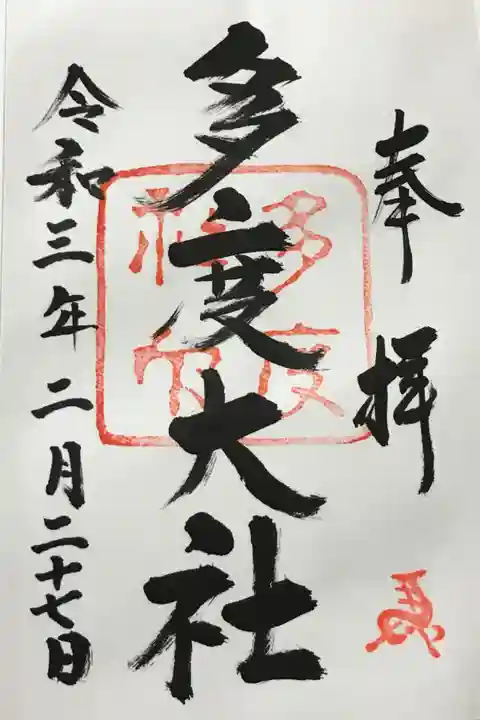 奉拝
多度大社
令和三年二月二十七日
多度
神社